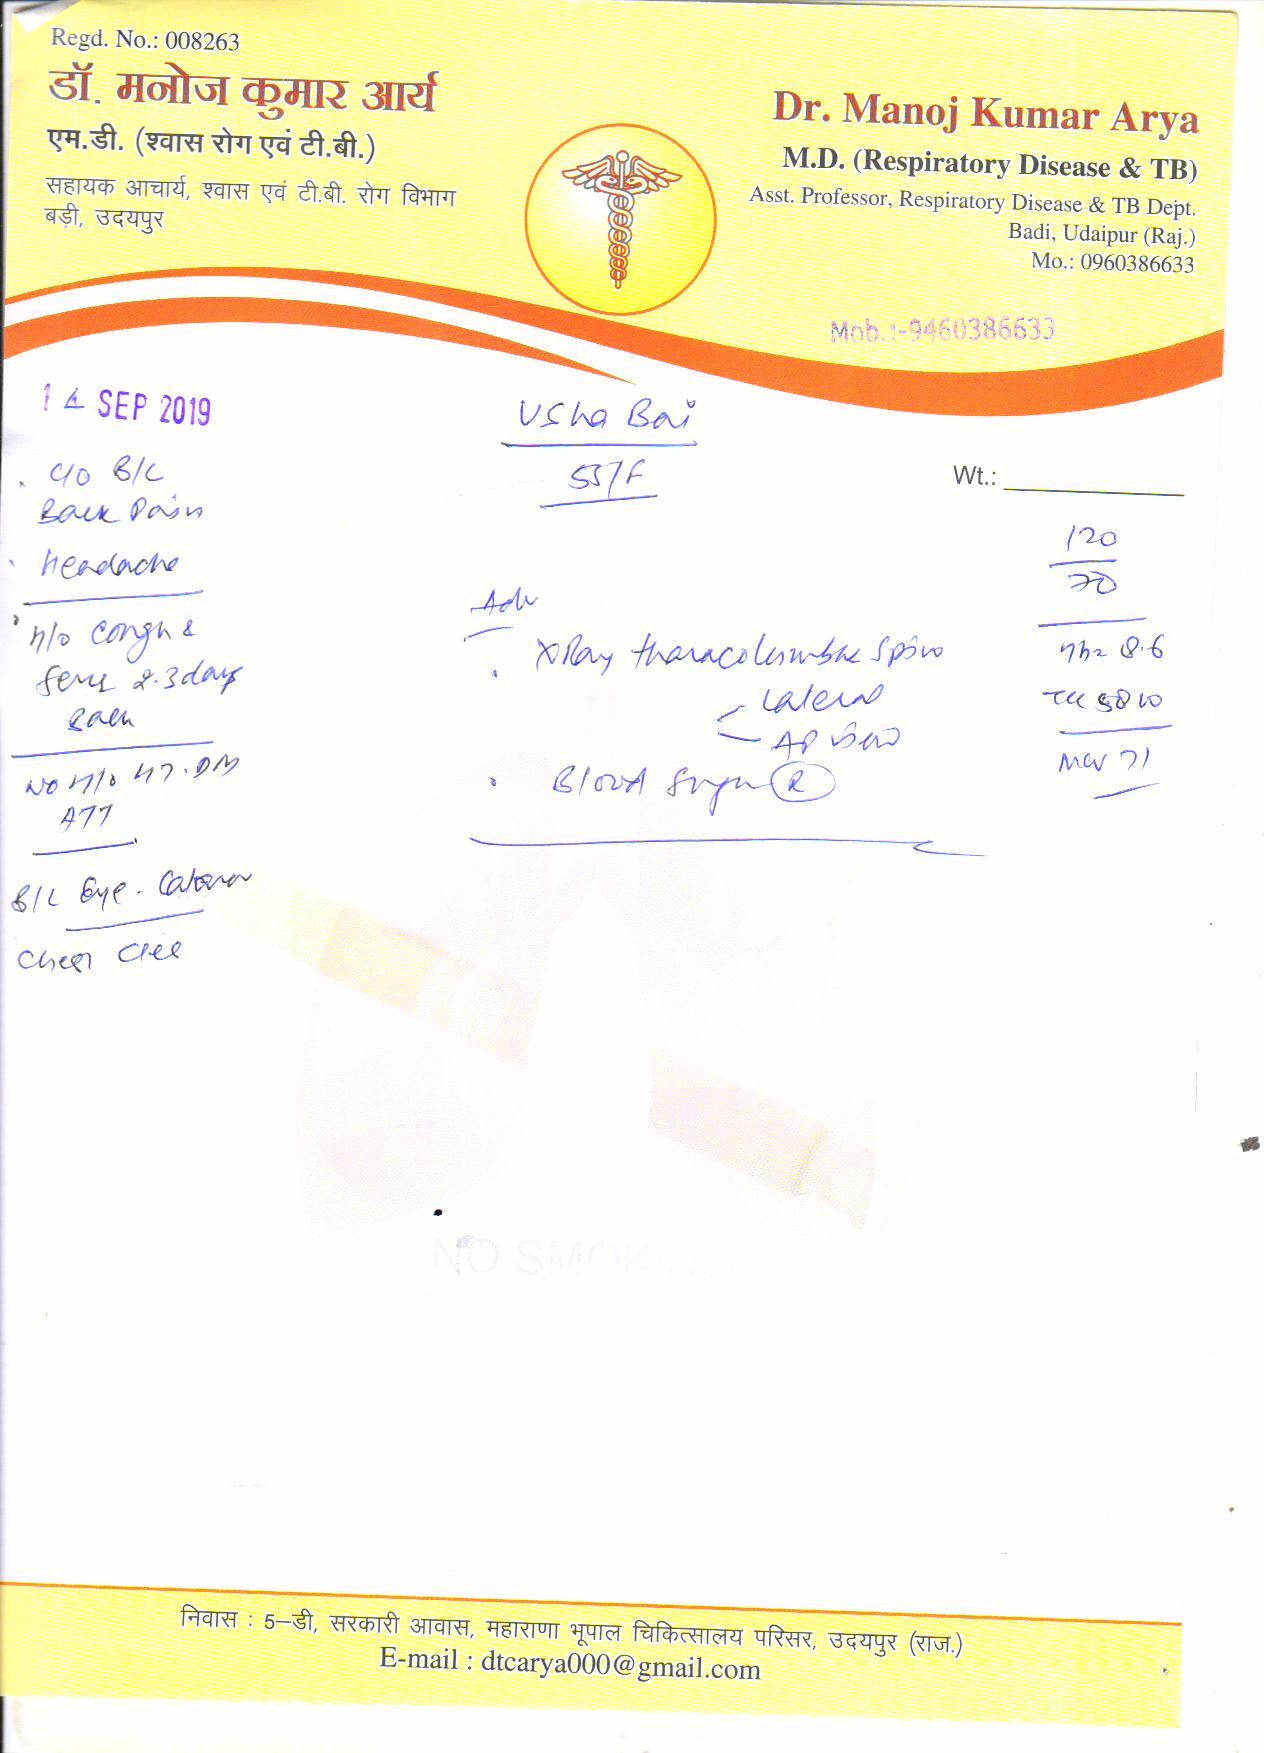 Regd. No.: 008263
डॉ. मनोज कुमार आर्य
एम.डी. (श्वास रोग एवं टी.बी.)
सहायक आचार्य, श्वास एवं टी.बी. रोग विभाग
बड़ी, उदयपुर
Dr. Manoj Kumar Arya
M.D. (Respiratory Disease & TB)
Asst. Professor, Respiratory Disease & TB Dept.
Badi, Udaipur (Raj.)
Mo.: 0960386633
Mob.:-9460386633
14 SEP 2019
Usha Bai
55/F
Wt.:
C/O B/L
Back Pain
Headache
H/O Cough &
fever 2-3 days
Back
NO H/O HT. DM
ATT
B/L Eye -
Chest Clear
120
70
Hb 8.6
TLC 5800
MCV 71
Adv
XRay thoracolumbar Spine
Lateral
AP view
Blood Sugar (R)
NO SMOKING
निवास : 5–डी, सरकारी आवास, महाराणा भूपाल चिकित्सालय परिसर, उदयपुर (राज.)
E-mail : dtcarya000@gmail.com